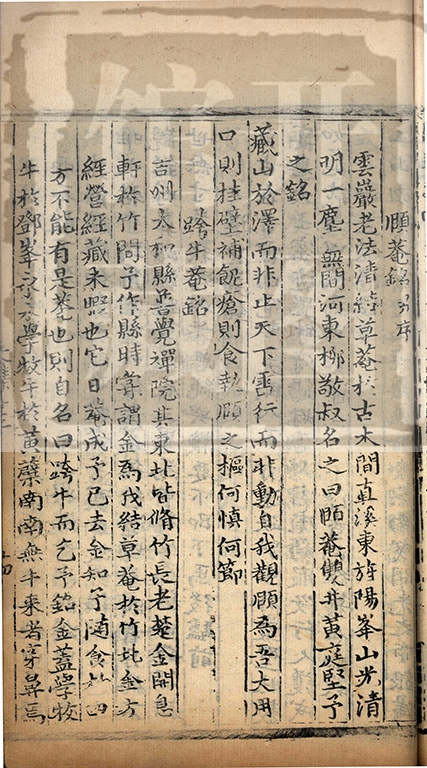 頤菴銘并序
雲巖老法清結草菴於古木間直溪東旌陽峯山光清
明一塵無間河東栁敬叔名之曰頤菴雙井黃庭堅予
之銘
藏山於澤而非止天下雷行而非動自我觀頤為吾大用
口則挂壁補飢瘡則食執頤之樞何慎何節
跨牛菴銘
吉州太和縣普覺禪院其東北皆脩竹長老楚金開息
軒於竹間予作縣時嘗謂金為我結草菴於竹北金方
經營經藏未暇也它日菴成予已去金知予隨食於四
方不能有是菴也則自名曰跨牛而乞予銘金蓋學牧
牛於鄧峯永永學牧牛於黃蘗南南無牛來者穿鼻焉